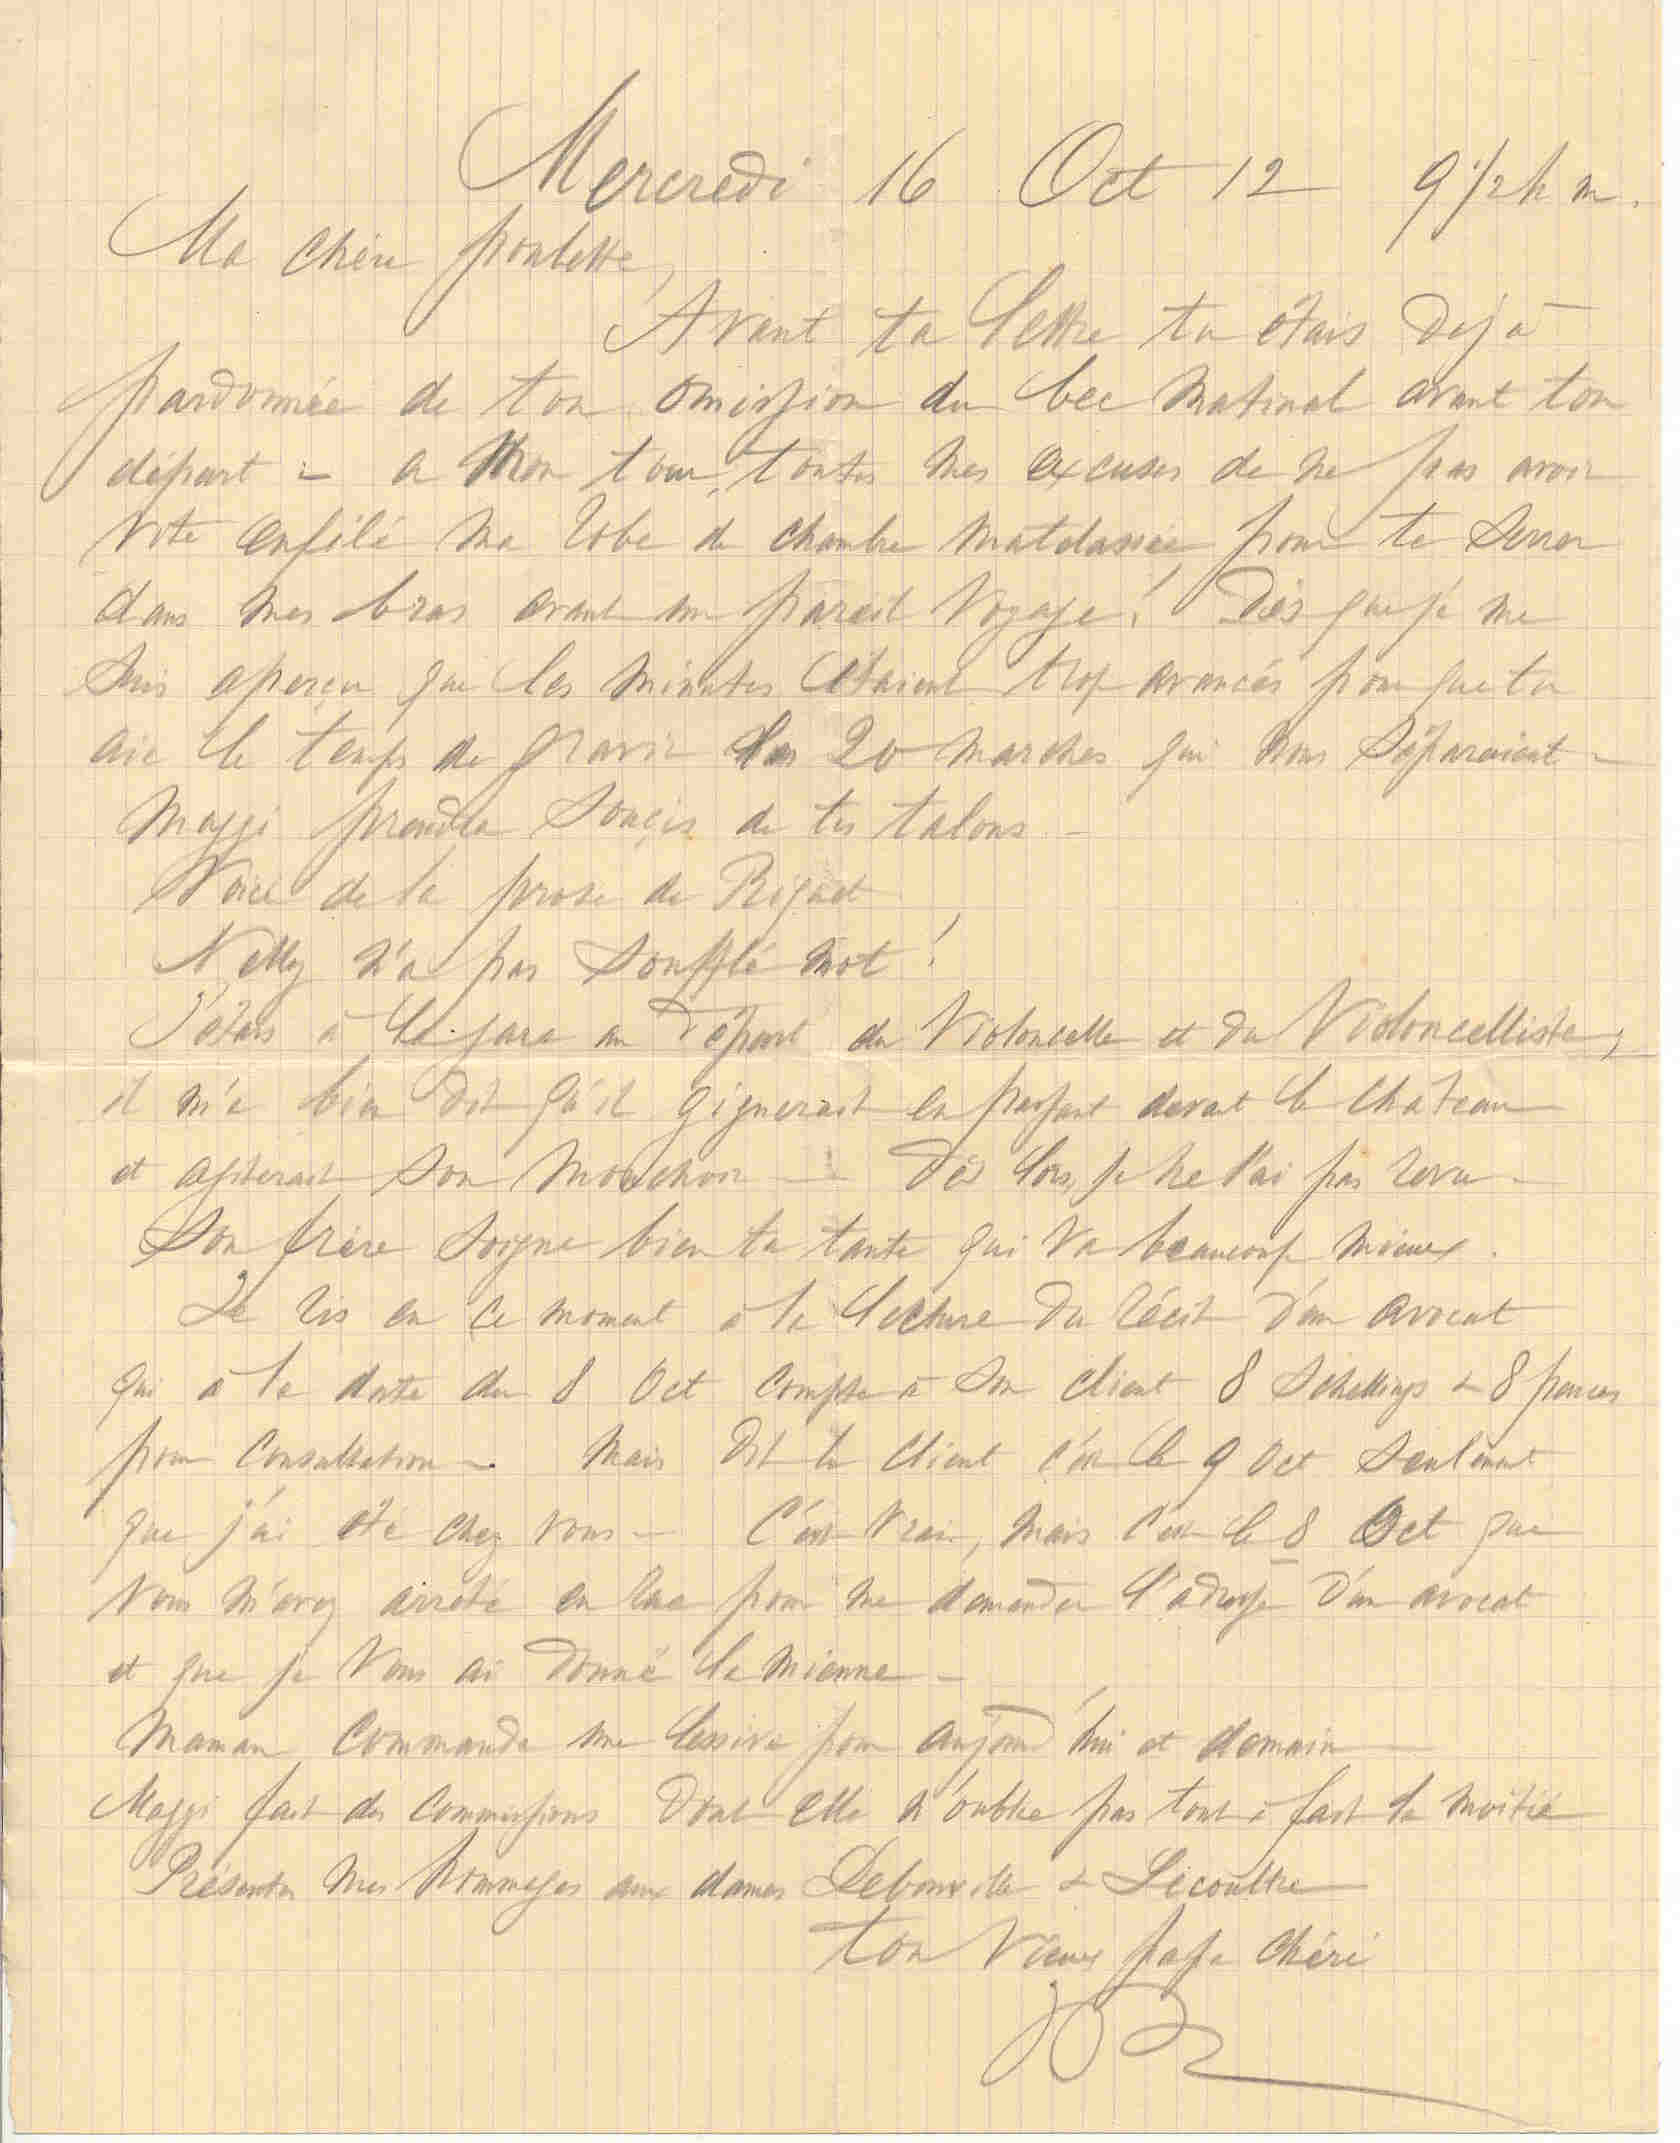 Mercredi 16 Oct 12 9 1/2 h m.
Ma chère poulette,
Avant ta lettre tu étais déjà
pardonnée de ton omission du bec matinal avant ton
départ – a mon tour, toutes mes excuses de ne pas avoir
vite enfilé ma robe de chambre matelassée pour te serrer
dans mes bras avant un pareil voyage! Dès que je me
suis aperçu que les minutes étaient trop avancés pour que tu
aie le temps de gravir les 20 marches qui nous séparaient –
Maggi prendra soucis de tes talons –
Voici de la prose de
Nelly n'a pas soufflé mot!
J'étais à la gare au départ du Violoncelle et du Violoncelliste,
il m'a bien dit qu'il gignerait en passant devant le chateau
et agiterait son mouchoir – Dès lors, je ne l'ai pas revu –
Son frère soigne bien ta tante qui va beaucoup mieux.
Je ris en ce moment à la lecture du récit d'un avocat
qui à la date du 8 Oct compte à son client 8 Schellings & 8 pences
pour consultation –. Mais dit le client c'est le 9 Oct seulement
que j'ai été chez vous – C'est vrai, mais c'est le 8 Oct que
vous m'avez arrêté en rue pour me demander l'adresse d'un avocat
et que je vous ai donné la mienne –
Maman commande une lessive pour aujourd'hui et demain –
Maggi fait des commissions dont elle n'oublie pas tout à fait la moitié
Présentes mes hommages aux dames & Lecoultre
ton vieux papa chéri